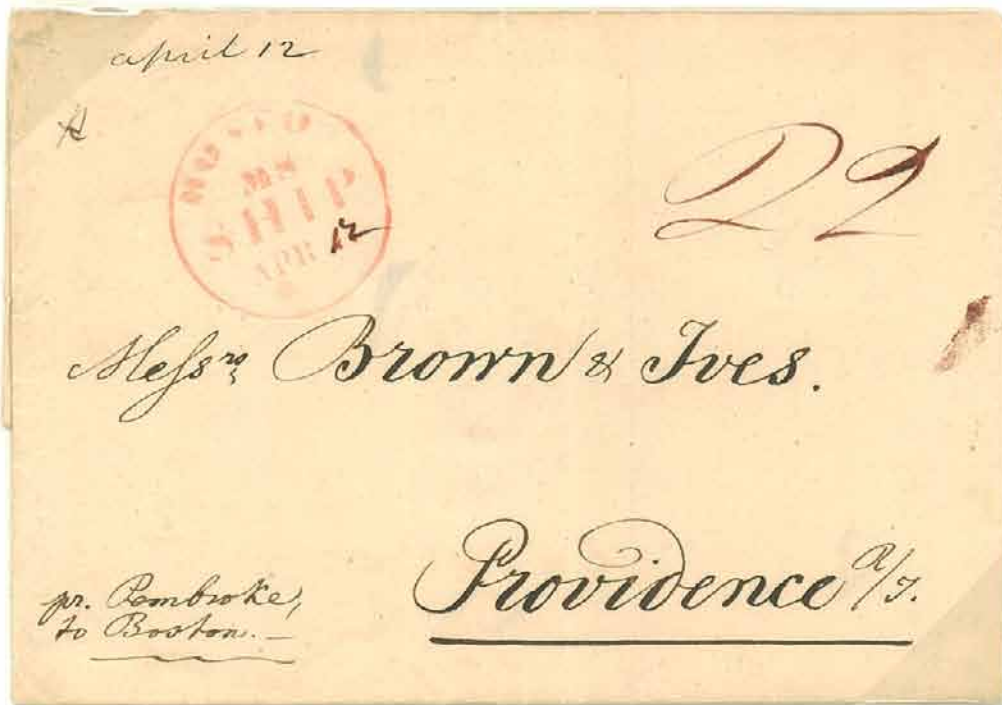 april 12
BOSTON
MS
SHIP
APR 12
22
Messrs Brown & Ives.
Providence R/I.
pr. Pembroke,
to Boston.